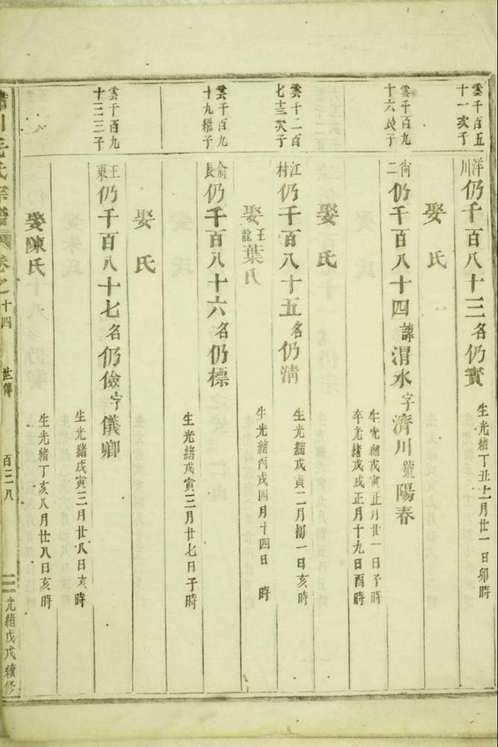 雲千百五
十一次子
洋川仍千百八十三名仍實
生光緒丁丑上月廿一日卯時
娶氏
雲千百九
十六長子
二仍千百八十四諱渭水字濟川號陽春
生光緒戊寅正月廿一日子時
卒光緒戊戌正月十九日酉時
娶氏
雲千二百
七十三次子
江村仍千百八十五名仍清
生光緒戊寅二月初一日亥時
娶王諠葉氏
生光緒丙戌四月十四日 時
雲千百九
十九繼子
俞長仍千百八十六名仍標
生光緒戊寅三月廿七日子時
娶氏
雲千百九
十三三子
王東仍千百八十七名仍儉字儀卿
生光緒戊寅三月廿八日亥時
娶陳氏
生光緒丁亥八月廿八日亥時
川毛氏宗譜 卷之十四 世傳 百二八 光緒戊戌續修